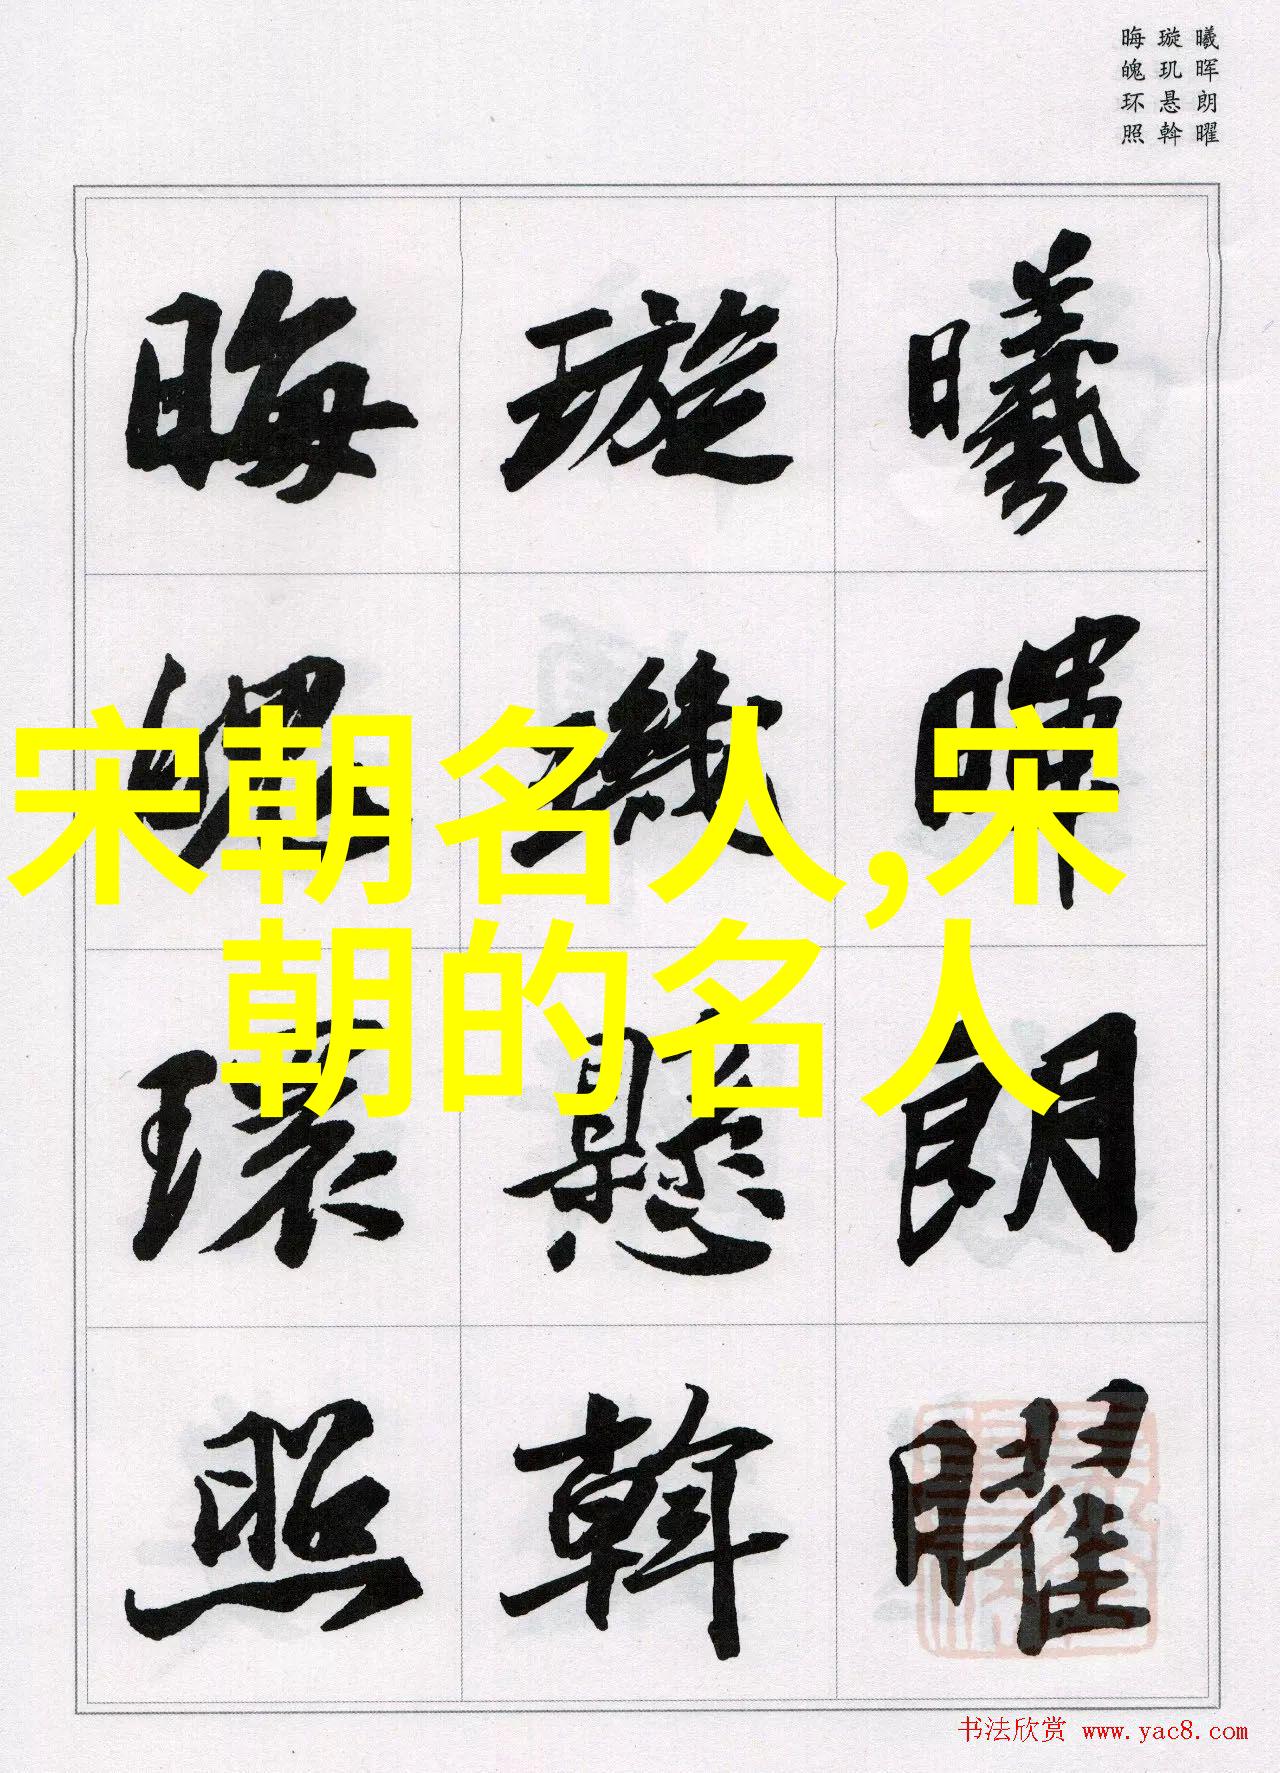 曦晖朗曜
璇玑悬斡
晦魄环照
曦暉朗曜
璇璣懸斡
晦魄環照
宋朝名人,宋
朝的名人
书法欣赏 www.yac8.com